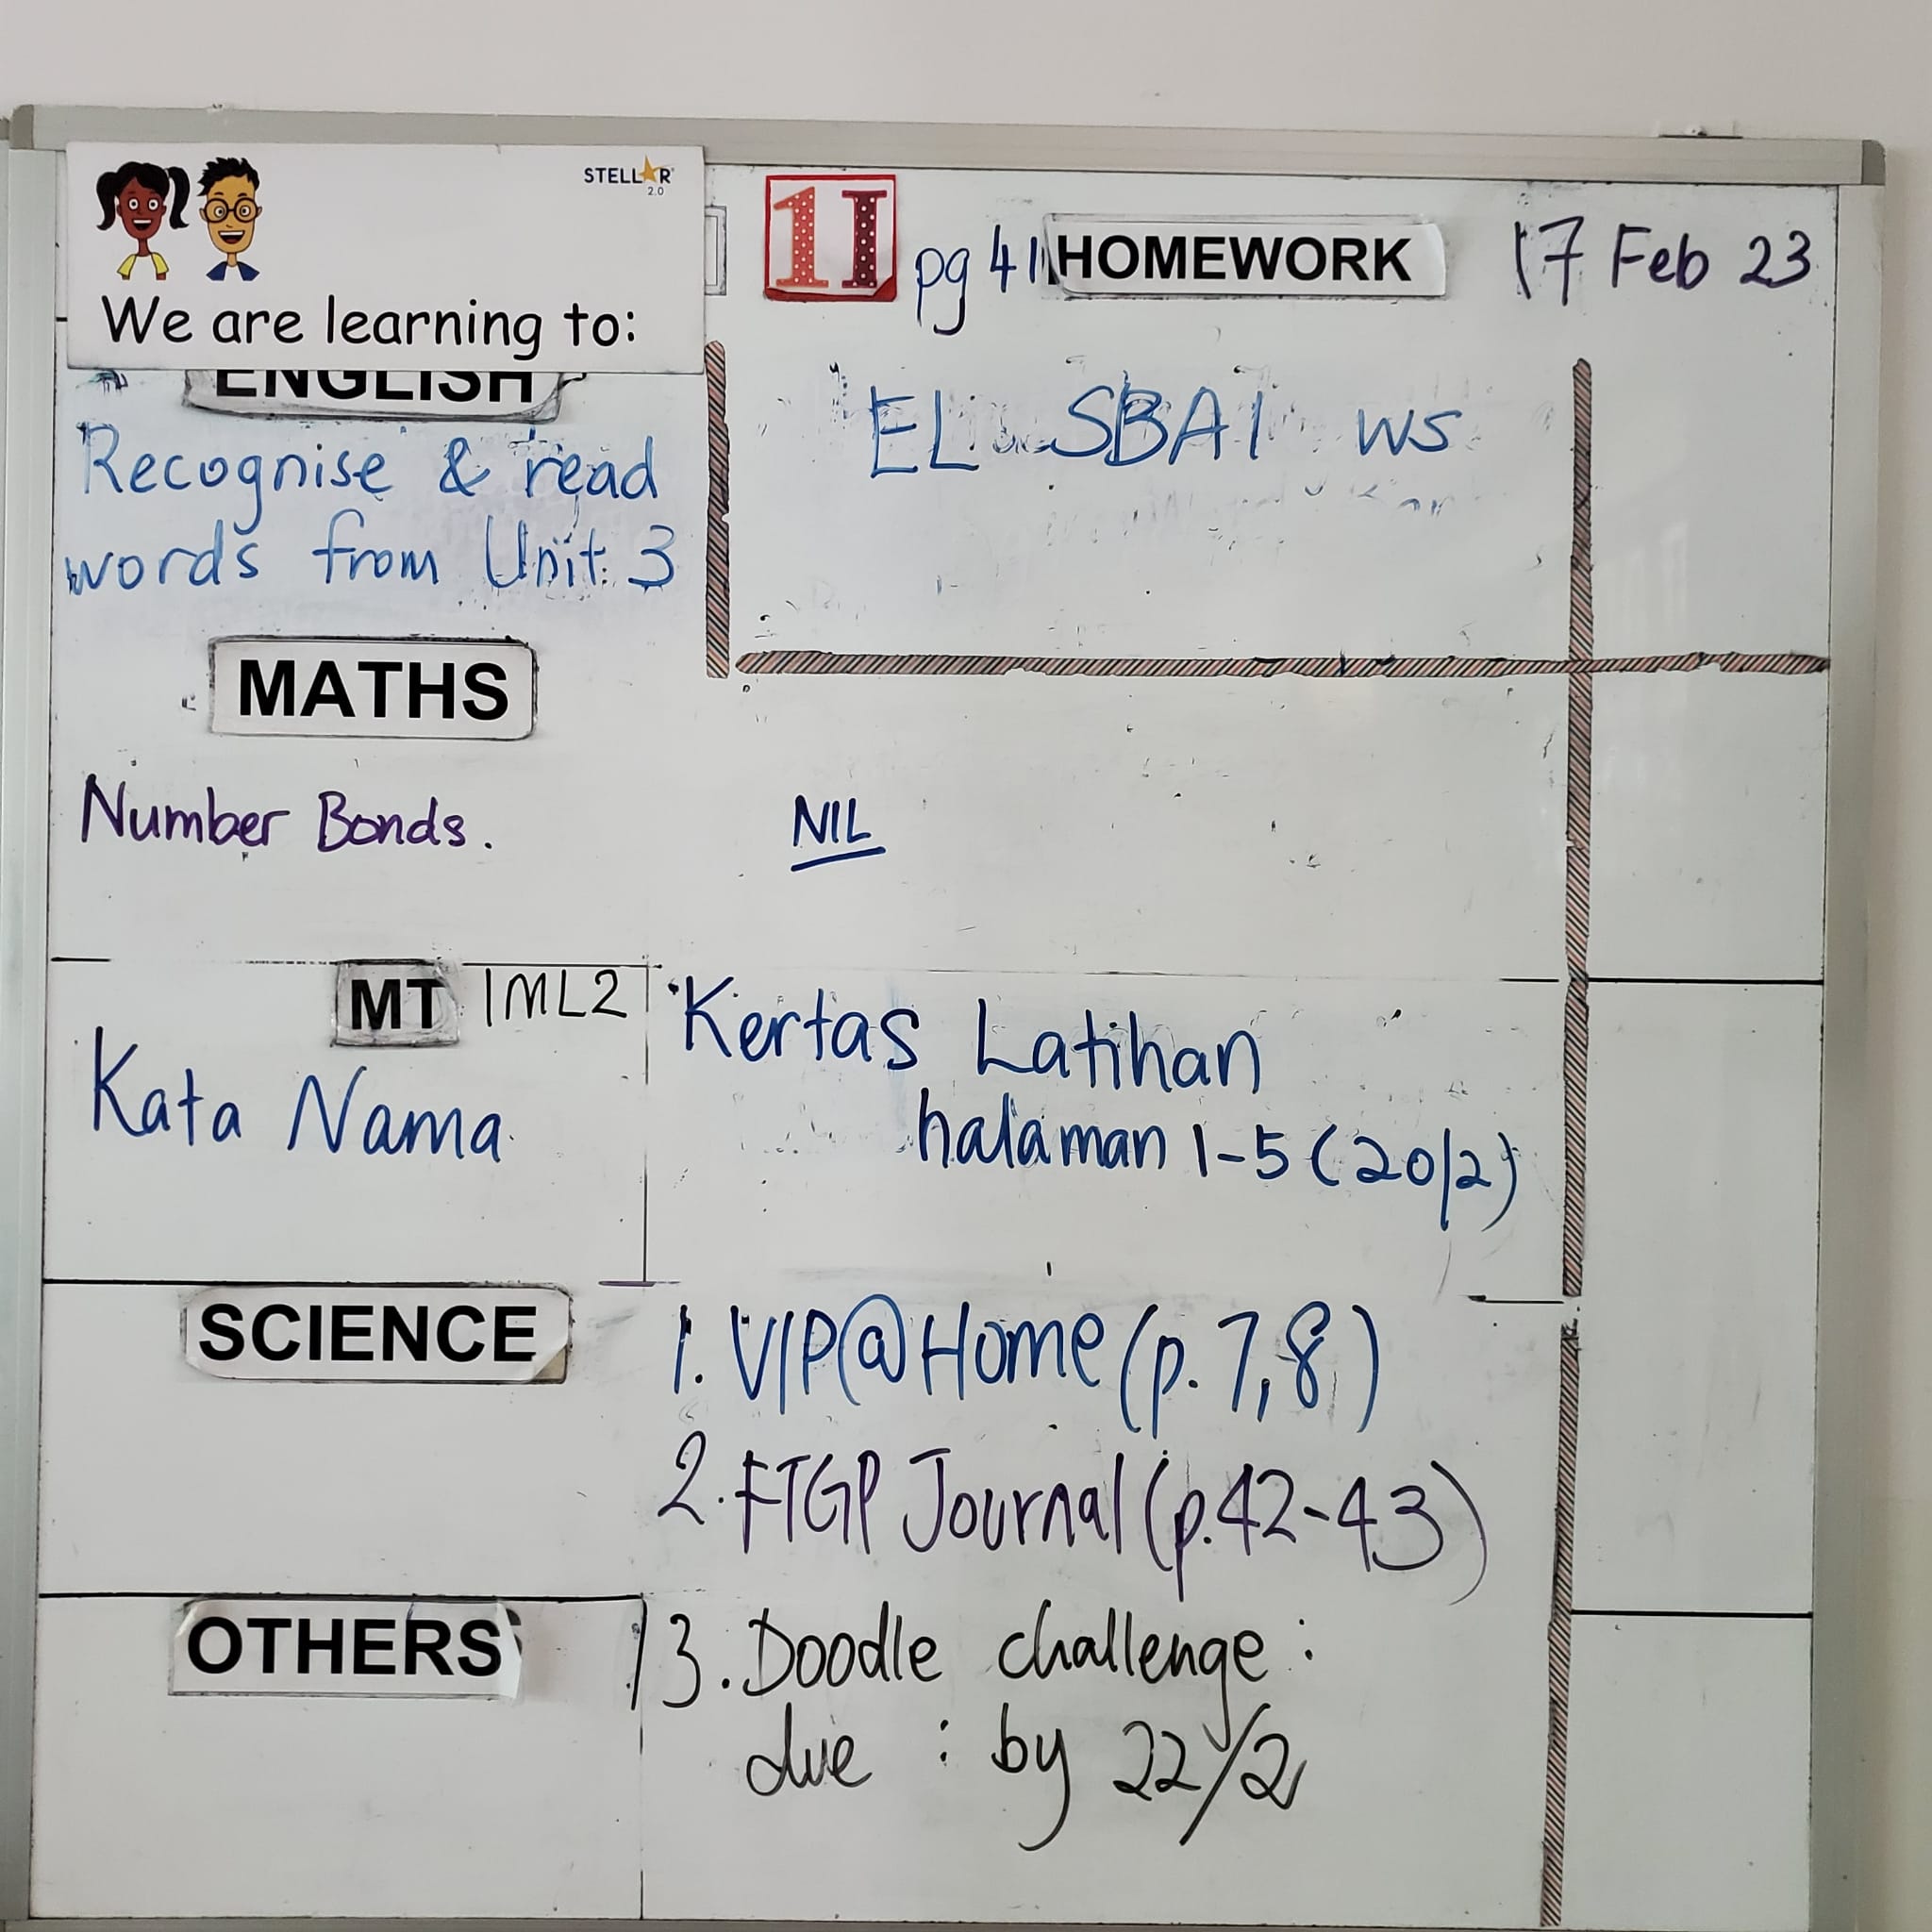 STELLAR 2.0
We are learning to:
1I pg 41 HOMEWORK 17 Feb 23
ENGLISH
Recognise & read
words from Unit 3
EL SBA1 WS
MATHS
Number Bonds.
NIL
MT 1ML2
Kata Nama
Kertas Latihan
halaman 1-5 (20/2)
SCIENCE
1. VIP@Home (p. 7,8)
2. FTGP Journal (p.42-43)
OTHERS
3. Doodle challenge :
due : by 22/2